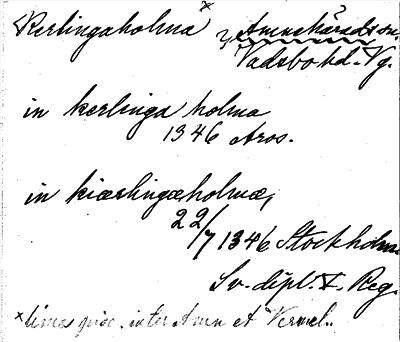 Kerlingaholma x
Amnehärads sn.
Vadsbo hd. Vg.
in kerlinga holma
1346 Aros.
in kiærlingæholmæ,
22/7 1346 Stockholm
Sv. dipl. V. Reg.
x limes inter Amn et